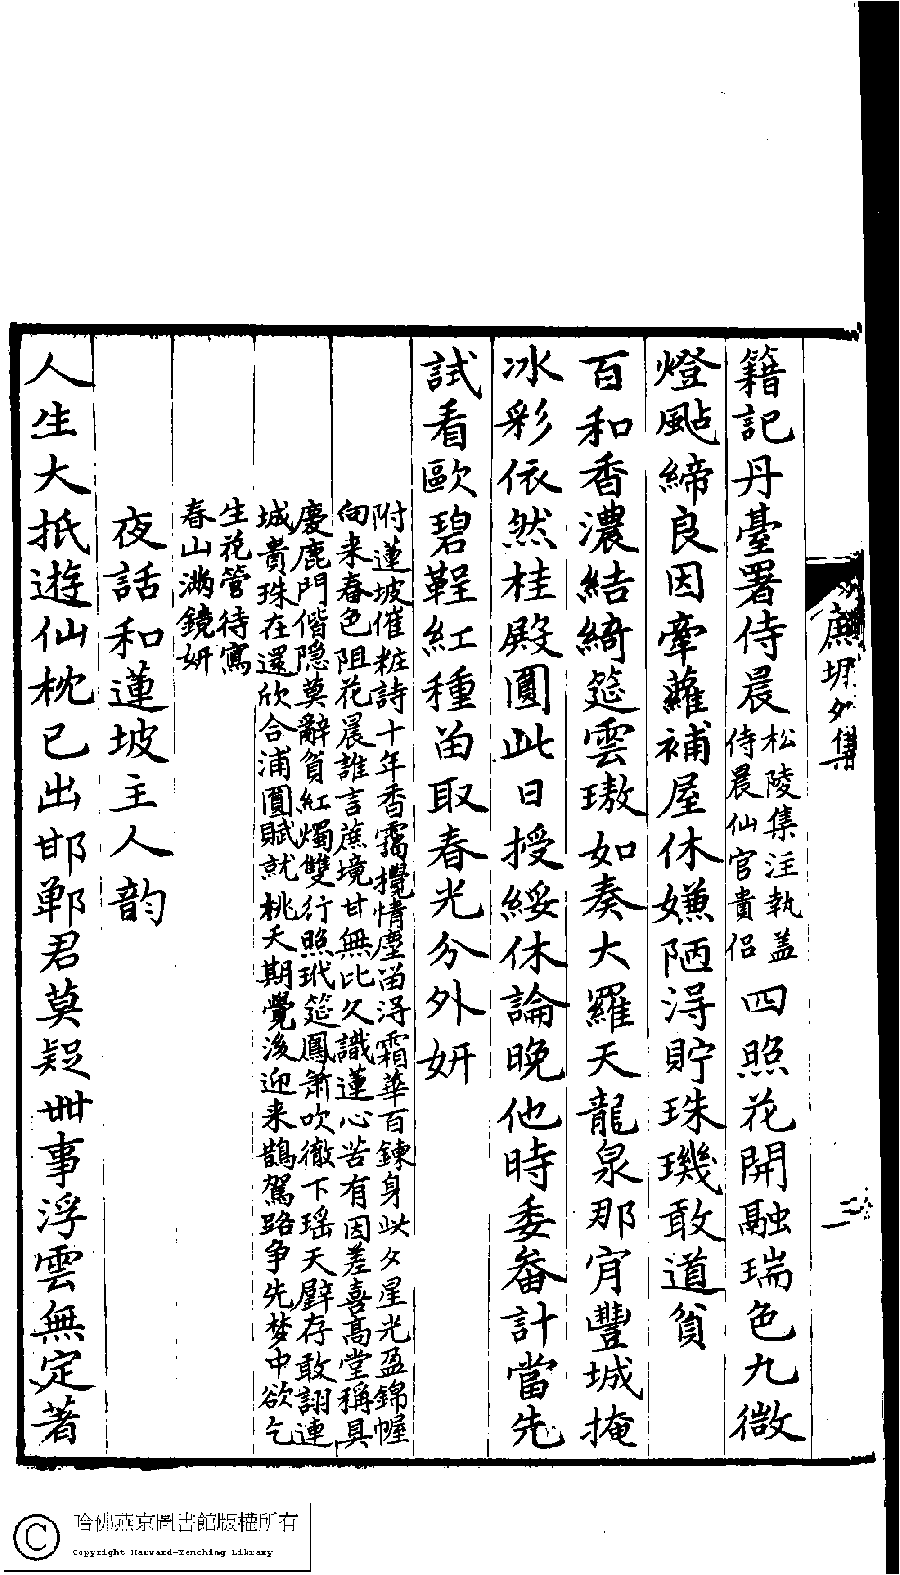 蔗塘外集
籍記丹臺署侍晨松陵集注執蓋侍晨仙官貴侶四照花開融瑞色九微
燈颭締良因牽蘿補屋休嫌陋淂貯珠璣敢道貧
百和香濃結綺筵雲璈如奏大羅天龍泉那肎豐城掩
冰彩依然桂殿圓此日授綏休論晚他時委畚計當先
試看歐碧鞓紅種畱取春光分外妍
附蓮坡催粧詩十年香靄攪情塵畱淂霜華百鍊身此夕星光盈錦幄
向来春色阻花晨誰言蔗境甘無比久識蓮心苦有因差喜高堂稱具
慶鹿門偕隐莫辭貧紅燭雙行照玳筵鳳簫吹徹下瑶天壁存敢詡連
城貴珠在還欣合浦圓賦就桃夭期覺後迎来鵲駕路争先梦中欲乞
生花管待寫
春山滿鏡妍
夜話和蓮坡主人韵
人生大抵遊仙枕已出邯鄲君莫疑丗事浮雲無定著
哈佛燕京圖書館版權所有
Copyright Harvard-Yenching Library